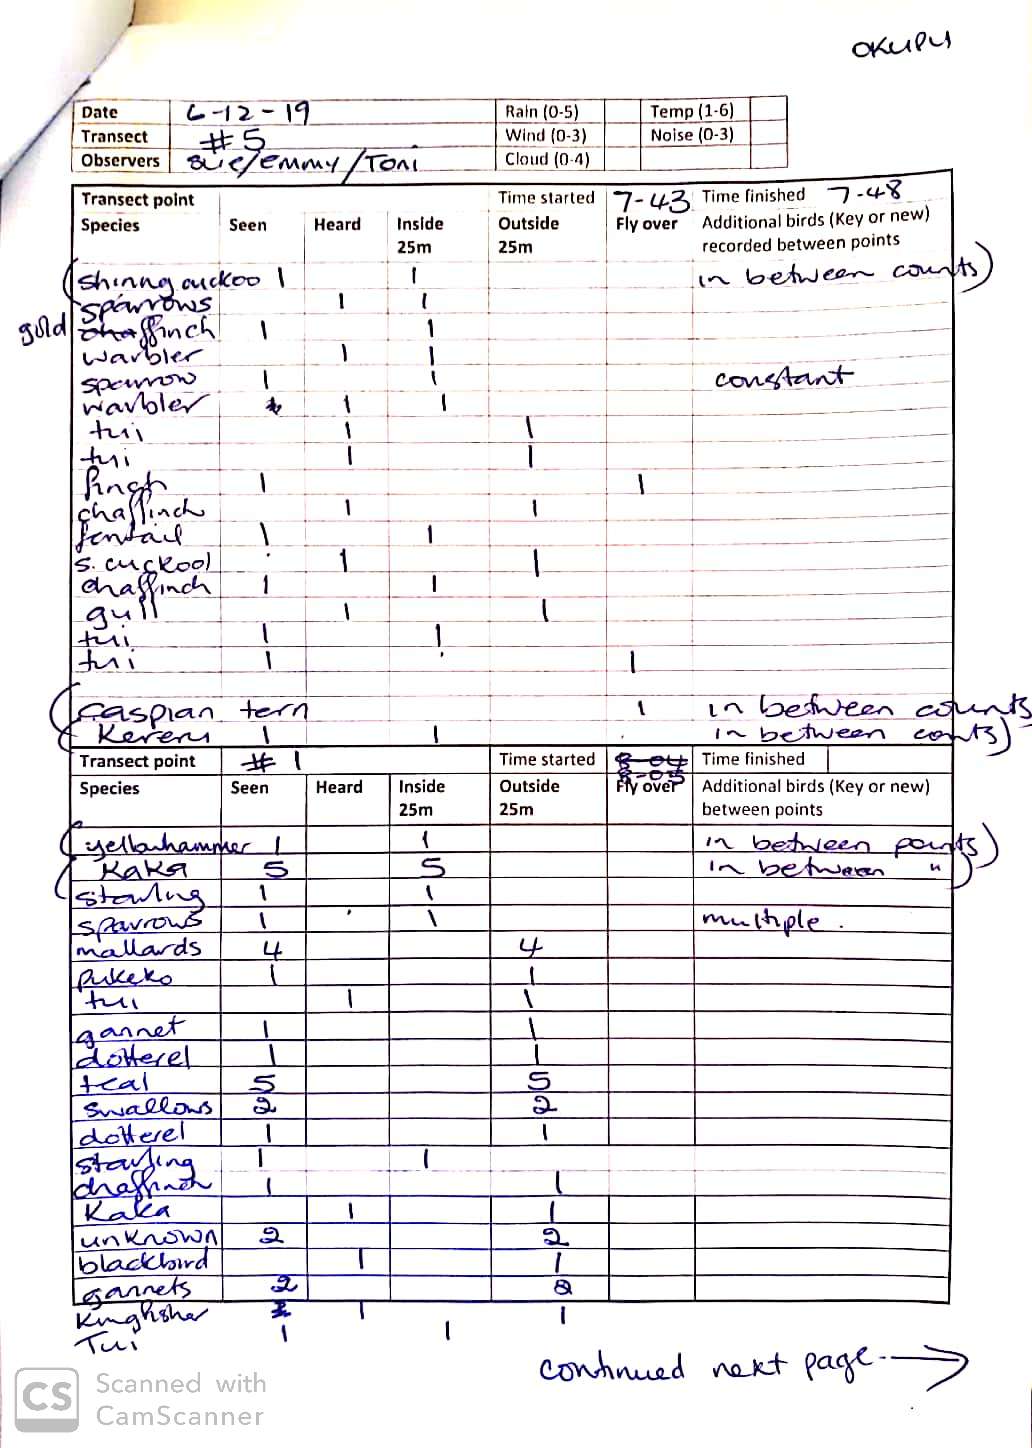 OKUPU
Date 6-12-19 Rain (0-5) Temp (1-6)
Transect #5 Wind (0-3) Noise (0-3)
Observers Sue/Emmy/Toni Cloud (0-4)
Transect point Time started 7-43 Time finished 7-48
Species Seen Heard Inside 25m Outside 25m Fly over Additional birds (Key or new) recorded between points
(shinng cuckoo 1 1 in between counts)
sparrows 1 1
gold chaffinch 1 1
warbler 1 1
sparrow 1 1 constant
warbler 1 1
tui 1 1
tui 1 1
finch 1 1
chaffinch 1 1
fantail 1 1
s. cuckool 1 1
chaffinch 1 1
gull 1 1
tui 1 1
tui 1 1
(caspian tern 1 in between counts
(Kereru 1 1 in between conts)
Transect point #1 Time started 8-04 8-05 Time finished
Species Seen Heard Inside 25m Outside 25m Fly over Additional birds (Key or new) between points
(yellowhammer 1 1 in between points)
(Kaka 5 5 in between ")
starling 1 1
sparrows 1 1 multiple.
mallards 4 4
pukeko 1 1
tui 1 1
gannet 1 1
dotterel 1 1
teal 5 5
swallows 2 2
dotterel 1 1
starling 1 1
chaffinch 1 1
Kaka 1 1
unknown 2 2
blackbird 1 1
gannets 2 2
Kingfisher 1 1
Tui 1 1
continued next page -->
CS Scanned with
CamScanner